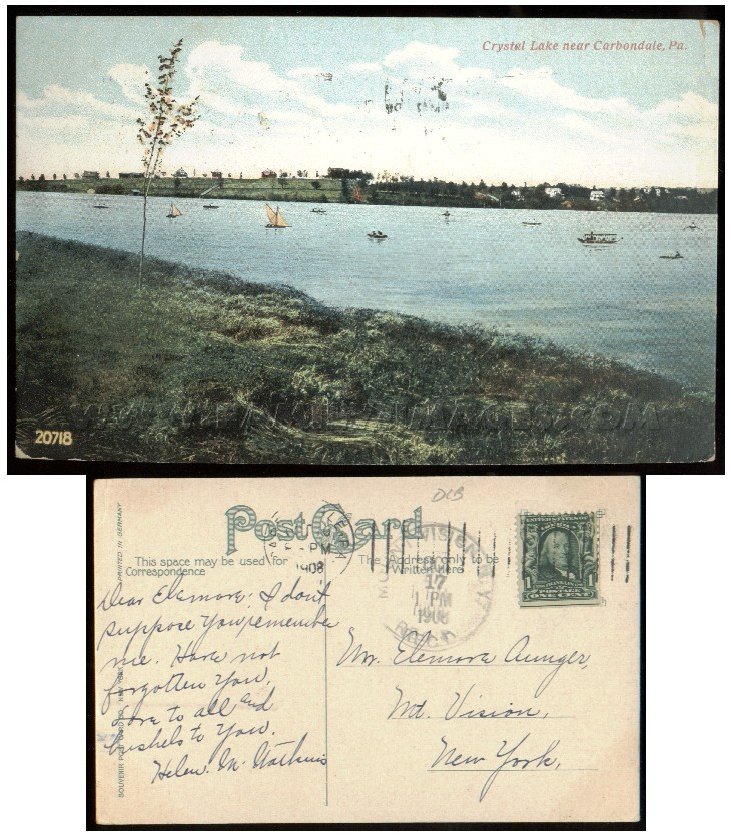 Crystal Lake near Carbondale, Pa.
20718
DCB
Post Card
This space may be used for
Correspondence
The Address only to be
Written Here
PRINTED IN GERMANY
PM
1908
MT. VISION N.Y.
17
1 PM
1908
REC'D
UNITED STATES
FRANKLIN
POSTAGE
1 ONE CENT 1
Dear Elemora; I don't
suppose you remember
me. Have not
forgotten you.
Love to all and
bushels to you.
Helen. M. Watkins
Elemora Aunger,
Mt. Vision,
New York,
SOUVENIR POST CARD CO. NEW YORK